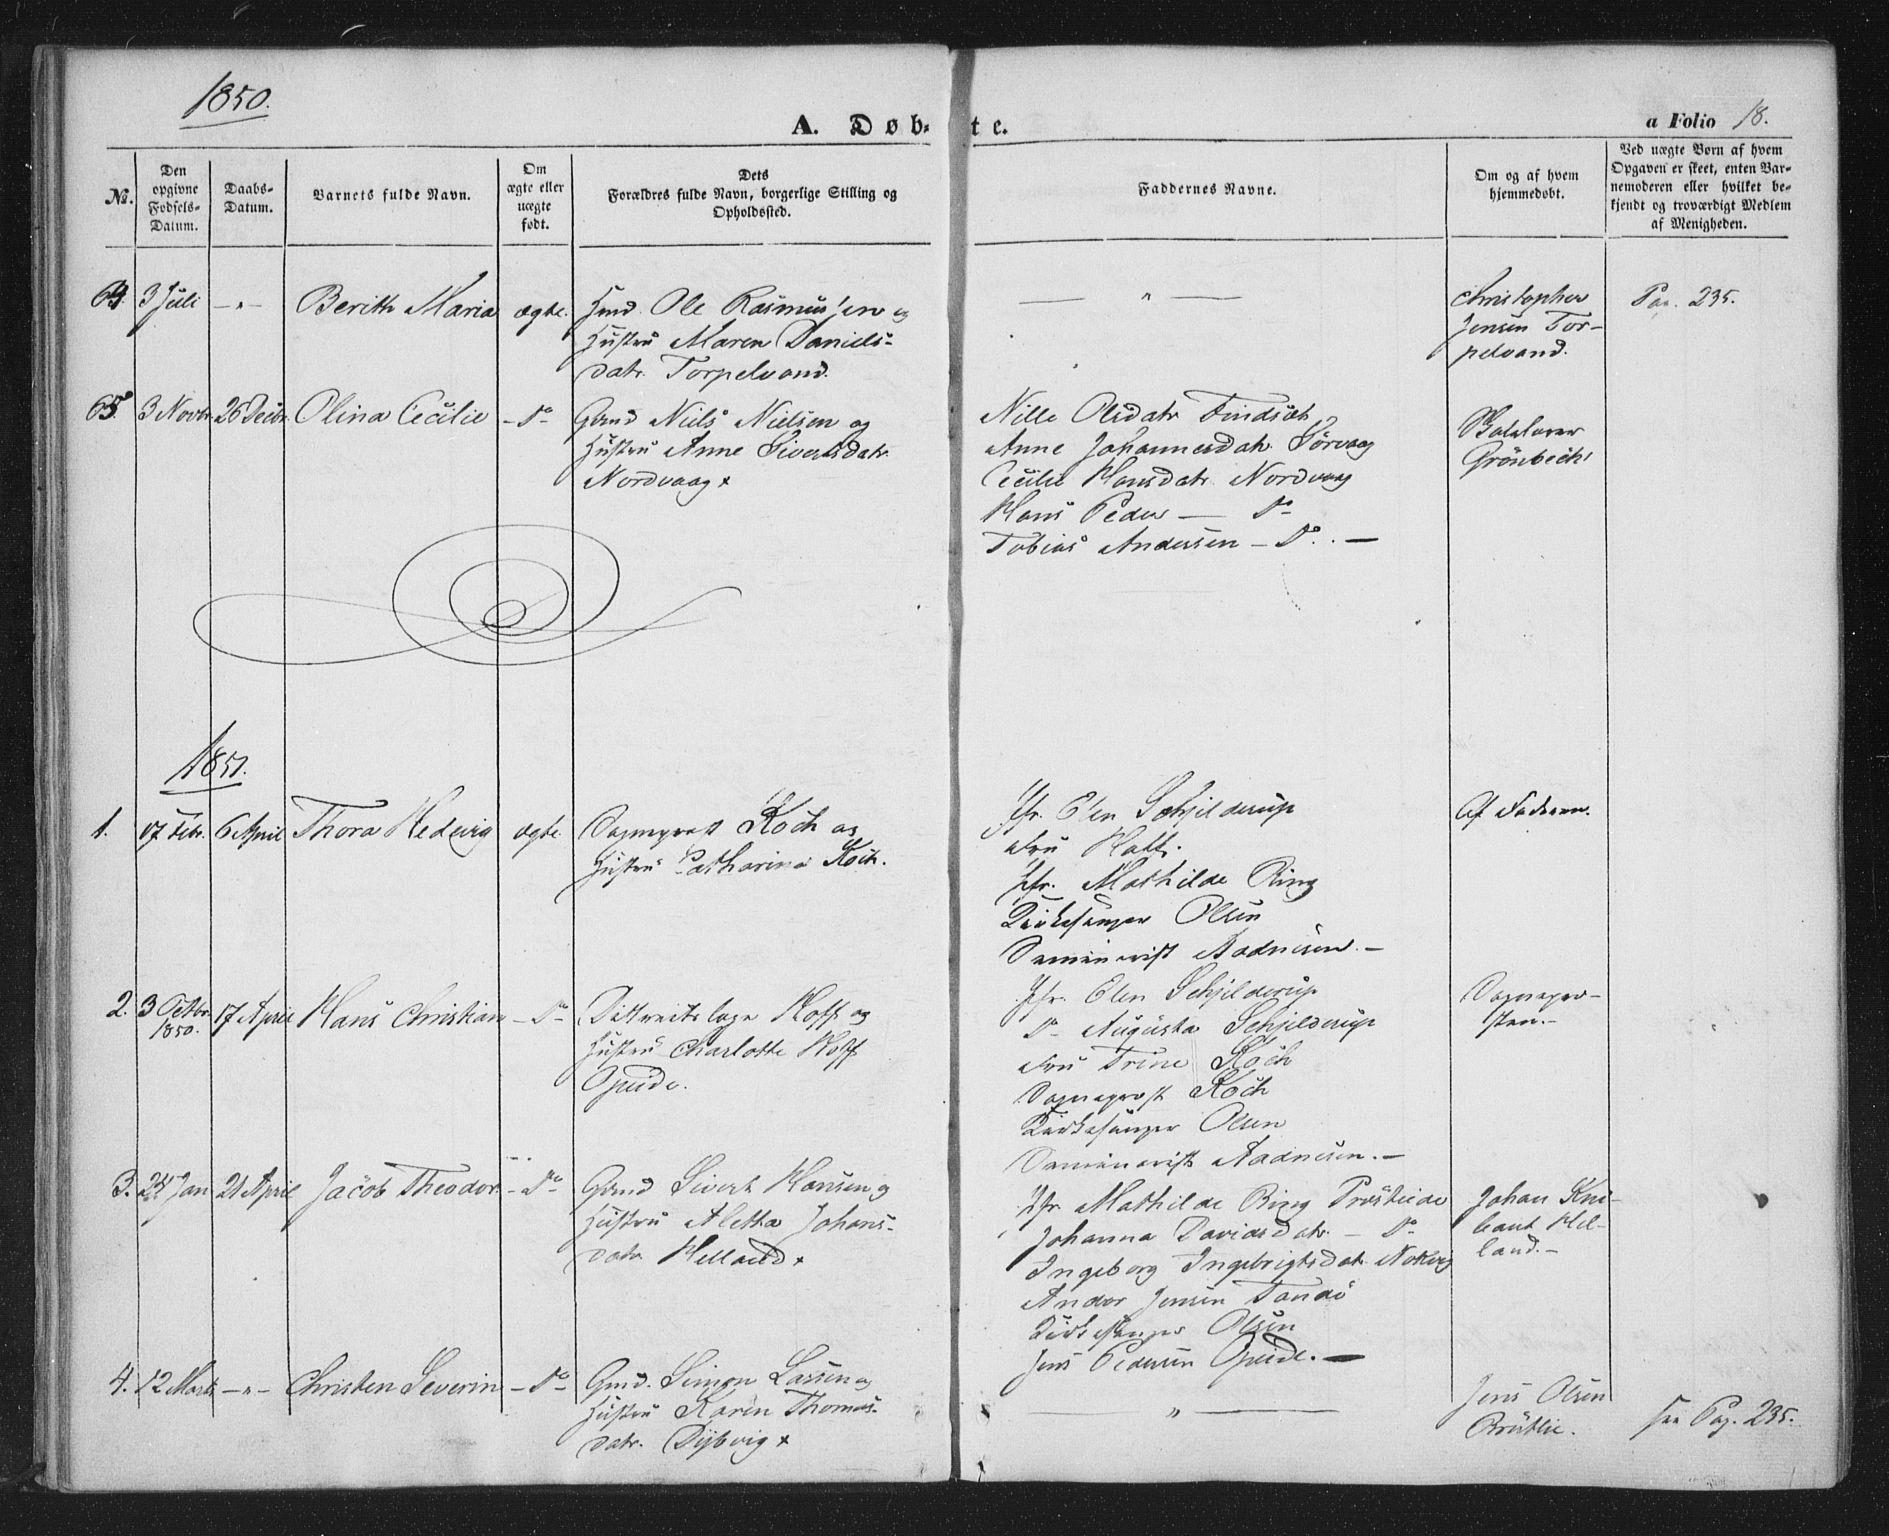 1850.
A. Døb-
te.
a Folio 18.
No.
Den opgivne Fødsels-Datum.
Daabs-Datum.
Barnets fulde Navn.
Om ægte eller uægte født.
Dets Forældres fulde Navn, borgerlige Stilling og Opholdssted.
Faddernes Navne.
Om og af hvem hjemmedøbt.
Ved uægte Børn af hvem Opgaven er skeet, enten Barnemoderen eller hvilket bekjendt og troværdigt Medlem af Menigheden.
64. 3 Juli —"— Berith Maria ægte.
Hmd. Ole Rasmussen og
Hustru Maren Daniels-
datr. Torpelvand.
— " —
Christopher
Jensen Tor-
pelvand.
Pag. 235.
65 3 Novbr. 26 Decbr. Olina Cecilie - Do -
Gbmd Niels Nielsen og
Hustru Anne Sivertsdatr.
Nordvaag
Nille Olsdatr Findsæt
Anne Johannesdatr. Sørvaag
Cecilie Hansdatr. Nordvaag
Hans Peder — Do
Tobias Andersen - Do. —
Grönbech
1851.
1. 17 Febr. 6 April Thora Hedevig ægte
Sogneprest Koch og
Hustru Catharina Koch.
Jfr. Elen Schjelderup
Fru Hall.
Jfr. Mathilde Ring
Kirkesanger Olsen
Seminarist Aadnesen. —
Af Faderen.
2. 3 Octbr. 1850. 17 April Hans Christian - Do -
Districtslæge Hoff og
Hustru Charlotte Hoff
Opeide.
Jfr. Elen Schjelderup
Do Augusta Schjelderup
Fru Trine Koch
Sogneprest Koch
Kirkesanger Olsen
Seminarist Aadnesen. —
Sognepre-
sten. —
3. 24 Jan 21 April Jacob Theodor. - Do -
Gbmd Sivert Hansen og
Hustru Aletta Johans-
datr. Helland
Jfr. Mathilde Ring Presteide
Johanna Davidsdatr. - Do
Ingeborg Ingebrigtsdatr. Nokvig
Andor Jensen Tanöö
Kirkesanger Olsen
Jens Pedersen Opeide. —
Johan
Hel-
land. —
4. 12 Marts —"— Christen Severin - Do -
Gmd. Simon Larsen og
Hustru Karen Thomas-
datr. Dybvig
— " —
Jens Olsen
Brustlie.
see Pag. 235.